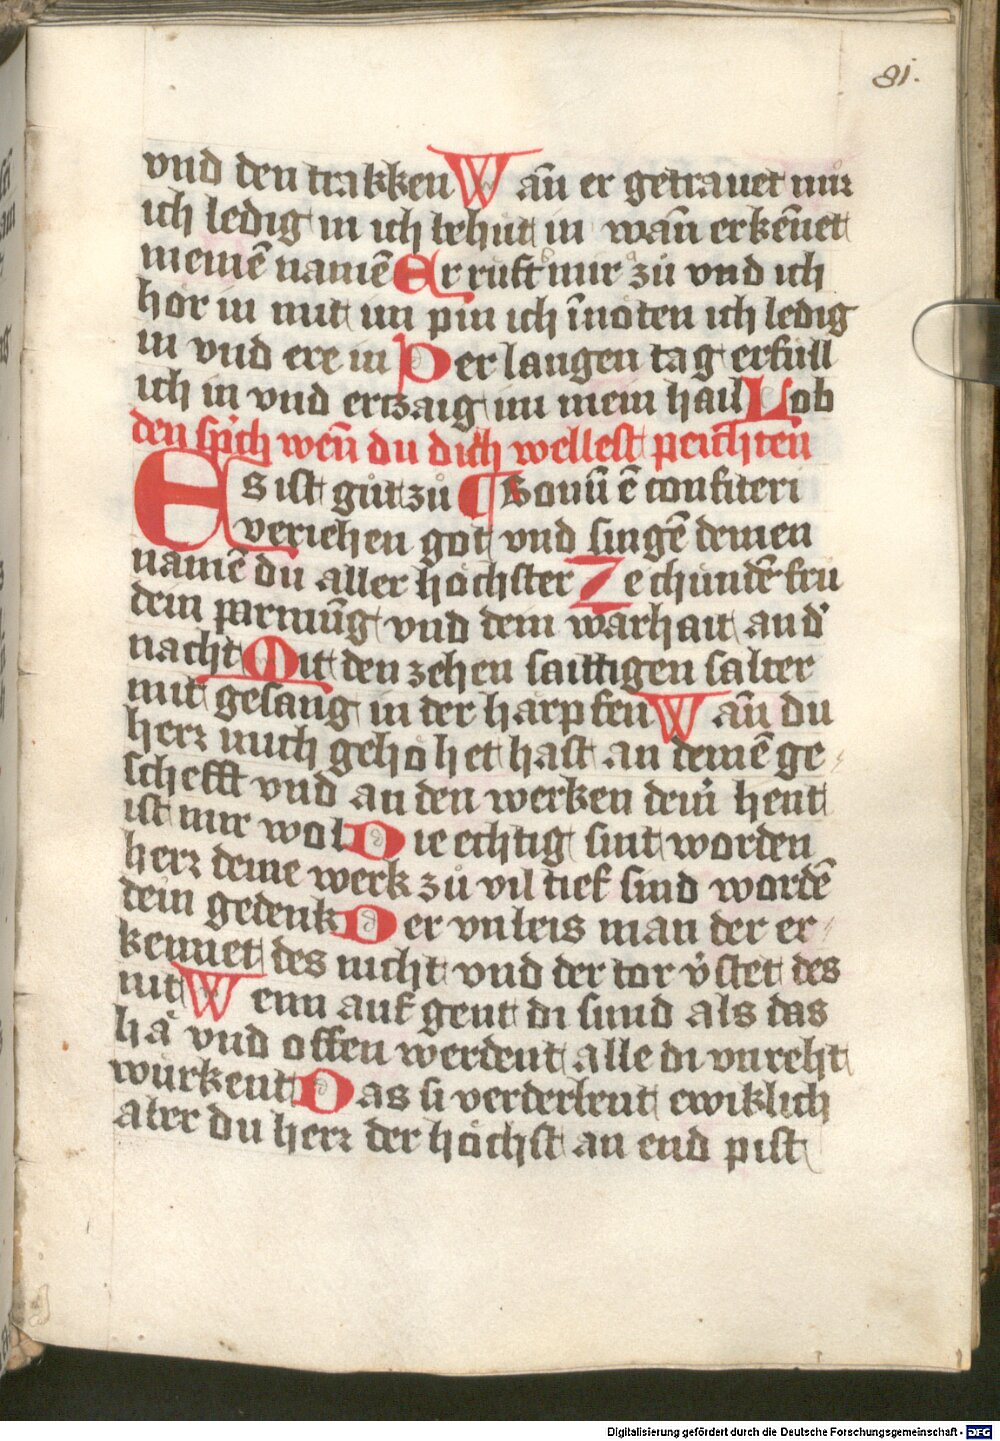 81.
vnd den trakken Wan̄ er getrauet mir
ich ledig in ich behüt in wan̄ erkēnet
meinē namē Er rüft mir zů vnd ich
hör in mit im pin ich ī nöten ich ledig
in vnd ere in Der langen tag erfüll
ich in vnd erzaig im mein hail Lob
den sp̄ch wen̄ du dich wellest peichten
Es ist gůt zů Bonū ē confiteri
veriehen got vnd singē deinen
namē du aller höchster Ze chünden fru
dein parmūg vnd dein warhait an d̓
nacht Mit den zehen saittigen salter
mit gesang in der härpfen Wan̄ du
herr mich gehöhet hast an deinē ge
schefft vnd an den werken dein̓ hent
ist mir wol Die echtig sint worden
herr deine werk zů vil tief sind wordē
dein gedenk Der vnleis man der er
kennet des nicht vnd der tor v̓stet des
nit Wenn auf gent di sund als das
hä vnd offen werdent alle di vnreht
würkent Das si verderbent ewiklich
aber du herr der höchst an end pist
Digitalisierung gefördert durch die Deutsche Forschungsgemeinschaft - DFG